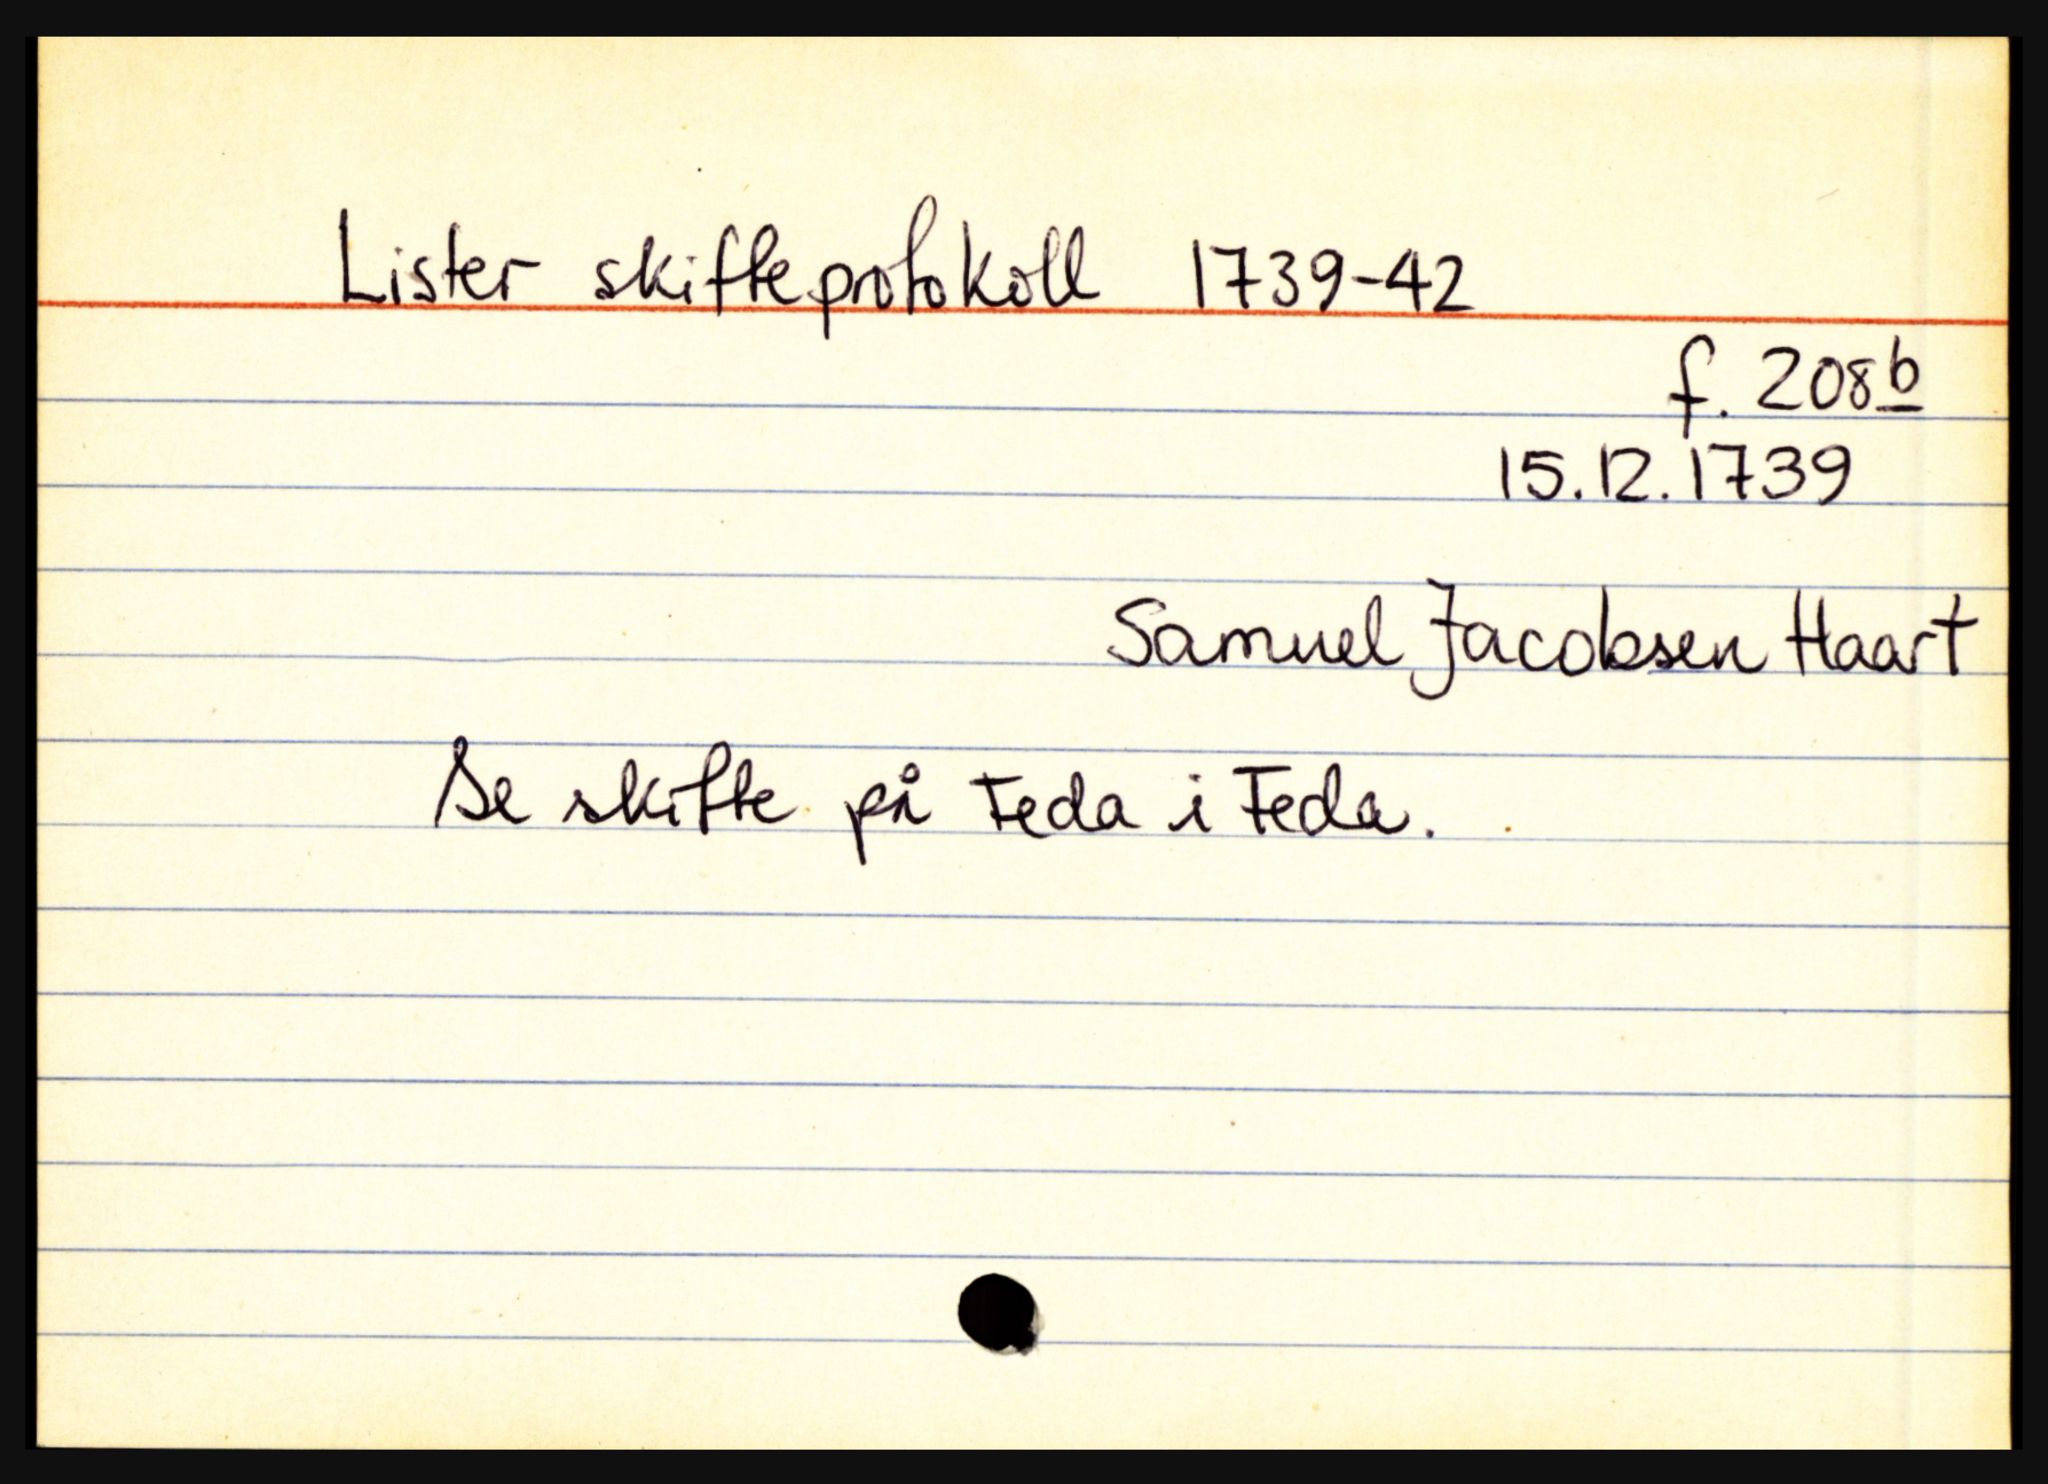 Lister skifteprotokoll 1739-42
f. 208b
15.12.1739
Samuel Jacobsen Haart
Se skifte på Feda i Feda.